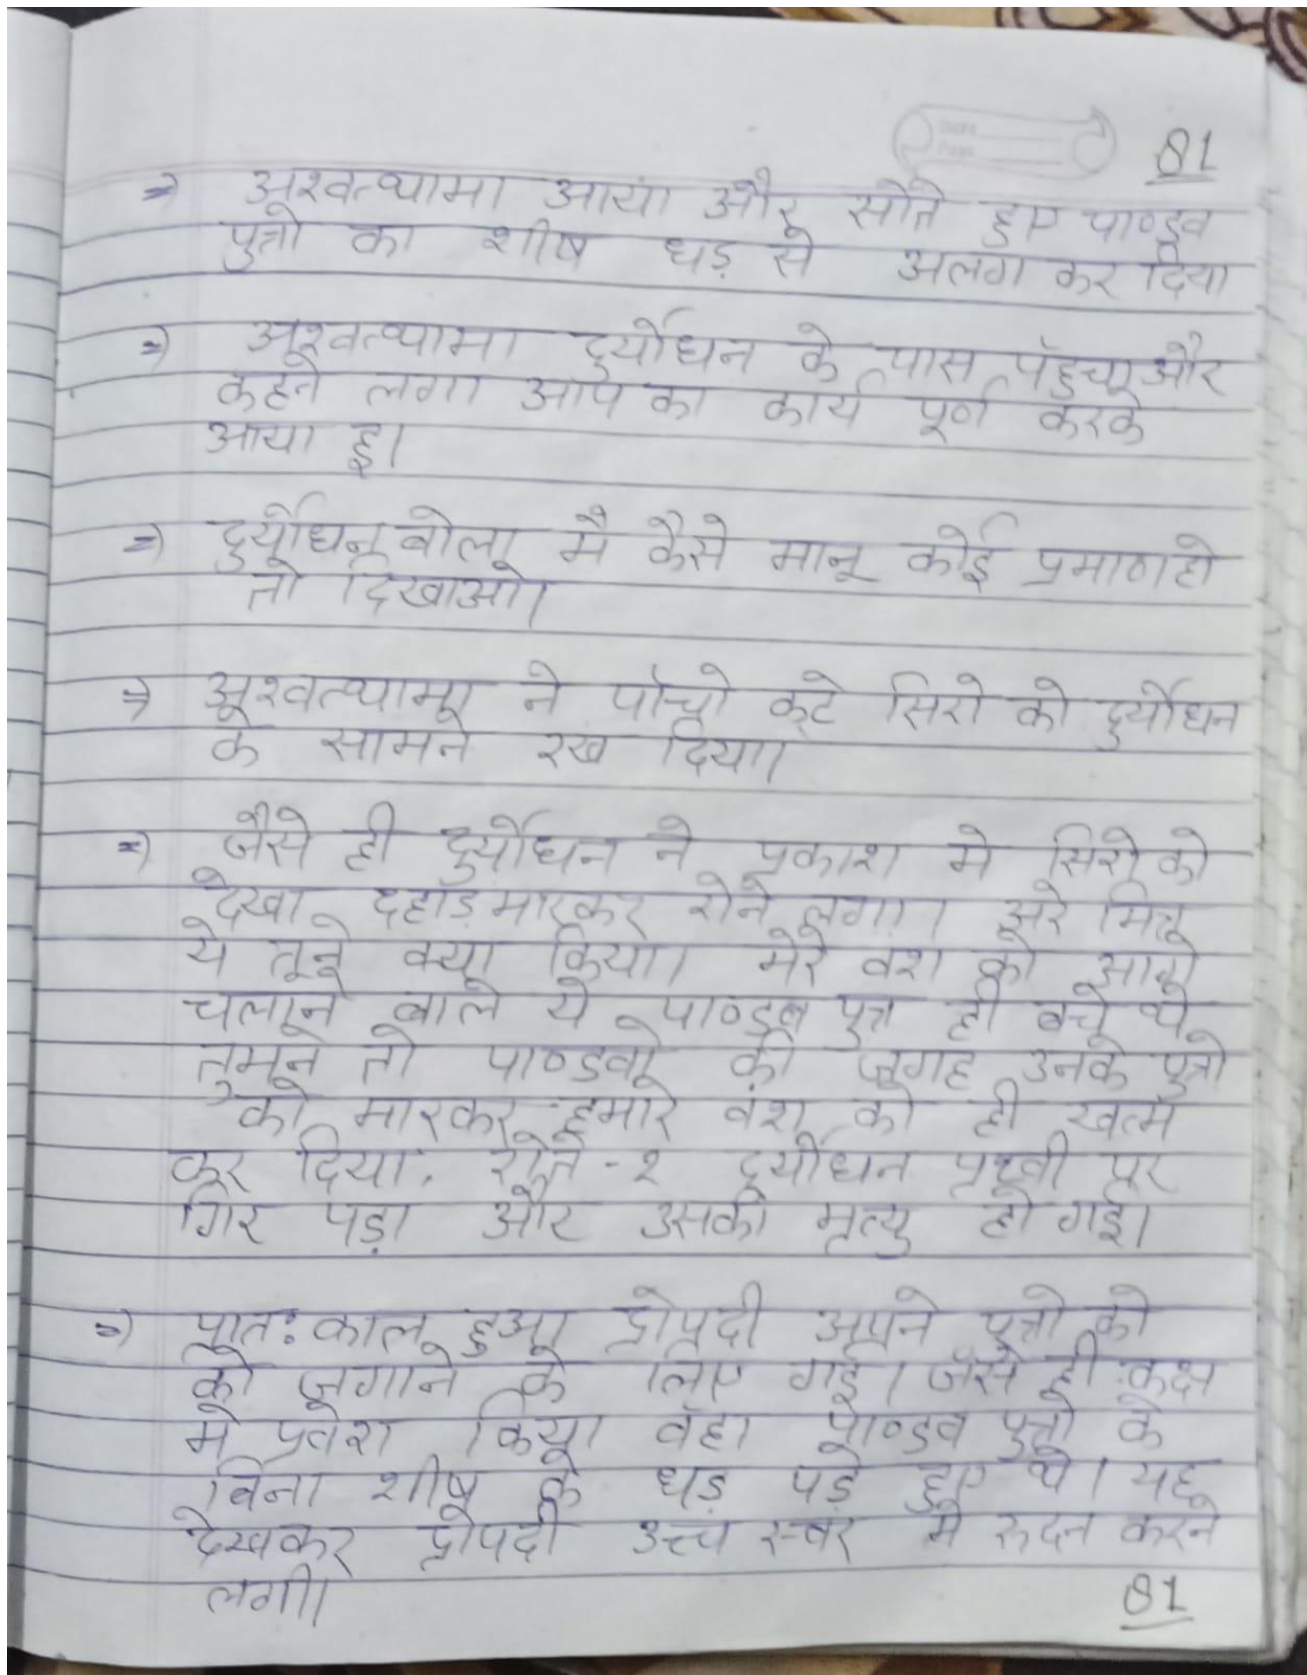 81
⇒ अश्वत्थामा आया और सोते हुए पाण्डव
पुत्रो का शीष धड़ से अलग कर दिया
⇒ अश्वत्थामा दुर्योधन के पास पॅहुचा और
कहने लगा आप का कार्य पूर्ण करके
आया हू।
⇒ दुर्योधन बोला मै कैसे मानू कोई प्रमाण हो
तो दिखाओ।
⇒ अश्वत्थामा ने पॉचो कटे सिरो को दुर्योधन
के सामने रख दिया।
⇒ जैसे ही दुर्योधन ने प्रकाश मे सिरो को
देखा दहाड़ मारकर रोने लगा। अरे मित्र
ये तूने क्या किया। मेरे वंश को आगे
चलाने वाले ये पाण्डव पुत्र ही बचे थे
तुमने तो पाण्डवो की जगह उनके पुत्रो
को मारकर हमारे वंश को ही खत्म
कर दिया। रोते-२ दुर्योधन पृथ्वी पर
गिर पड़ा और उसकी मृत्यु हो गई।
⇒ प्रात: काल हुआ द्रोपदी अपने पुत्रो को
को जगाने के लिए गई। जैसे ही कक्ष
मे प्रवेश किया वॅहा पाण्डव पुत्रो के
बिना शीष के धड़ पड़े हुए थे। यह
देखकर द्रोपदी उच्च स्वर मे रुदन करने
लगी।
81